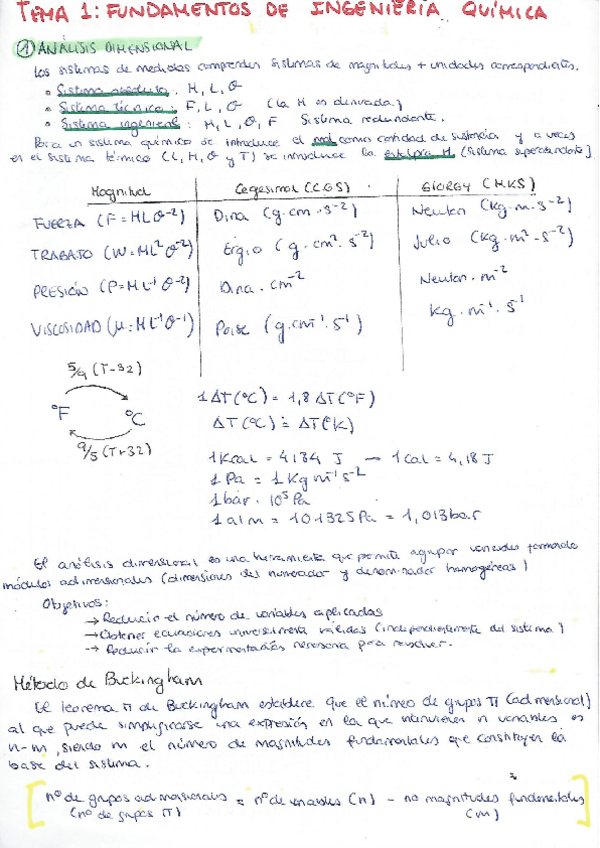 TEMA 1: FUNDAMENTOS DE INGENIERIA QUÍMICA
① ANÁLISIS DIMENSIONAL
Los sistemas de medidas comprenden sistemas de magnitudes + unidades correspondientes.
• Sistema absoluto: M, L, θ
• Sistema técnico: F, L, θ (la M es derivada)
• Sistema ingenieril: M, L, θ, F Sistema redundante.
Para un sistema químico se introduce el mol como cantidad de sustancia y a veces
en el sistema térmico (L, M, θ y T) se introduce la entalpía H (Sistema superabundante)
Magnitud Cegesimal (CGS) GIORGY (MKS)
FUERZA (F = MLθ⁻²) Dina (g·cm·s⁻²) Newton (kg·m·s⁻²)
TRABAJO (W = ML²θ⁻²) Ergio (g·cm²·s⁻²) Julio (kg·m²·s⁻²)
PRESIÓN (P = ML⁻¹θ⁻²) Dina·cm⁻² Newton·m⁻²
VISCOSIDAD (μ = ML⁻¹θ⁻¹) Poise (g·cm⁻¹·s⁻¹) kg·m⁻¹·s⁻¹
5/9 (T-32)
ºF ºC
9/5 (T+32)
1 ΔT(ºC) = 1,8 ΔT(ºF)
ΔT(ºC) = ΔT(ºK)
1 Kcal = 4184 J → 1 cal = 4,18 J
1 Pa = 1 Kg m⁻¹ s⁻²
1 bar · 10⁵ Pa
1 atm = 101325 Pa = 1,013 bar
El análisis dimensional es una herramienta que permite agrupar variables formando
módulos adimensionales (dimensiones del numerador y denominador homogéneas)
Objetivos:
→ Reducir el número de variables implicadas
→ Obtener ecuaciones universalmente válidas (independientemente del sistema)
→ Reducir la experimentación necesaria para resolver.
Método de Buckingham
El teorema π de Buckingham establece que el número de grupos π (adimensional)
al que puede simplificarse una expresión en la que intervienen n variables es
n-m, siendo m el número de magnitudes fundamentales que constituyen la
base del sistema.
nº de grupos adimensionales = nº de variables (n) - no magnitudes fundamentales
(nº de grupos π) (m)